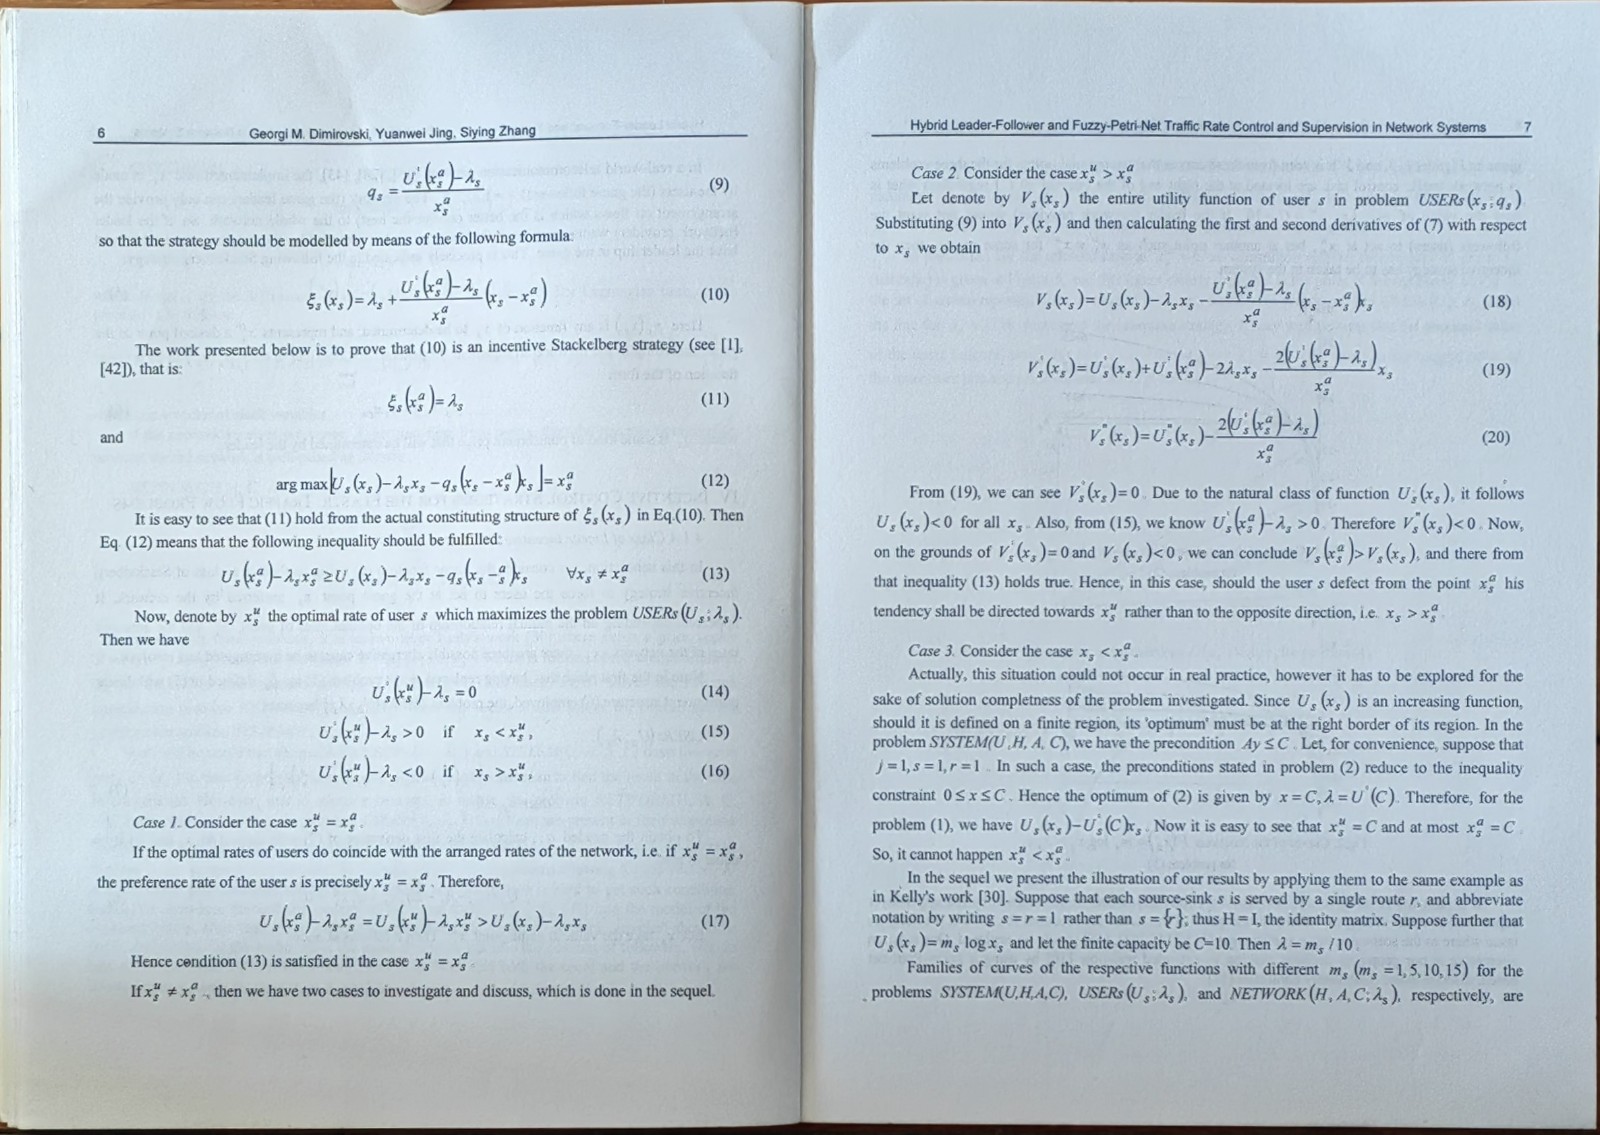 6 Georgi M. Dimirovski, Yuanwei Jing, Siying Zhang
q_s = (U'_s(x_s^a) − λ_s) / x_s^a (9)
so that the strategy should be modelled by means of the following formula:
ξ_s(x_s) = λ_s + (U'_s(x_s^a) − λ_s) / x_s^a (x_s − x_s^a) (10)
The work presented below is to prove that (10) is an incentive Stackelberg strategy (see [1],
[42]), that is:
ξ_s(x_s^a) = λ_s (11)
and
arg max[U_s(x_s) − λ_s x_s − q_s(x_s − x_s^a)x_s] = x_s^a (12)
It is easy to see that (11) hold from the actual constituting structure of ξ_s(x_s) in Eq.(10). Then
Eq. (12) means that the following inequality should be fulfilled:
U_s(x_s^a) − λ_s x_s^a ≥ U_s(x_s) − λ_s x_s − q_s(x_s − _s^a)x_s ∀x_s ≠ x_s^a (13)
Now, denote by x_s^u the optimal rate of user s which maximizes the problem USERs(U_s; λ_s).
Then we have
U'_s(x_s^u) − λ_s = 0 (14)
U'_s(x_s^u) − λ_s > 0 if x_s < x_s^u, (15)
U'_s(x_s^u) − λ_s < 0 if x_s > x_s^u, (16)
Case 1. Consider the case x_s^u = x_s^a.
If the optimal rates of users do coincide with the arranged rates of the network, i.e. if x_s^u = x_s^a,
the preference rate of the user s is precisely x_s^u = x_s^a. Therefore,
U_s(x_s^a) − λ_s x_s^a = U_s(x_s^u) − λ_s x_s^u > U_s(x_s) − λ_s x_s (17)
Hence condition (13) is satisfied in the case x_s^u = x_s^a.
If x_s^u ≠ x_s^a, then we have two cases to investigate and discuss, which is done in the sequel.
Hybrid Leader-Follower and Fuzzy-Petri-Net Traffic Rate Control and Supervision in Network Systems 7
Case 2. Consider the case x_s^u > x_s^a
Let denote by V_s(x_s) the entire utility function of user s in problem USERs(x_s; q_s)
Substituting (9) into V_s(x_s) and then calculating the first and second derivatives of (7) with respect
to x_s we obtain
V_s(x_s) = U_s(x_s) − λ_s x_s − (U'_s(x_s^a) − λ_s) / x_s^a (x_s − x_s^a)x_s (18)
V'_s(x_s) = U'_s(x_s) + U'_s(x_s^a) − 2λ_s x_s − 2(U'_s(x_s^a) − λ_s) / x_s^a x_s (19)
V"_s(x_s) = U"_s(x_s) − 2(U'_s(x_s^a) − λ_s) / x_s^a (20)
From (19), we can see V'_s(x_s) = 0. Due to the natural class of function U_s(x_s), it follows
U_s(x_s) < 0 for all x_s. Also, from (15), we know U'_s(x_s^a) − λ_s > 0. Therefore V"_s(x_s) < 0. Now,
on the grounds of V'_s(x_s) = 0 and V_s(x_s) < 0, we can conclude V_s(x_s^a) > V_s(x_s), and there from
that inequality (13) holds true. Hence, in this case, should the user s defect from the point x_s^a his
tendency shall be directed towards x_s^u rather than to the opposite direction, i.e. x_s > x_s^a
Case 3. Consider the case x_s < x_s^a.
Actually, this situation could not occur in real practice, however it has to be explored for the
sake of solution completness of the problem investigated. Since U_s(x_s) is an increasing function,
should it is defined on a finite region, its 'optimum' must be at the right border of its region. In the
problem SYSTEM(U,H, A, C), we have the precondition Ay ≤ C. Let, for convenience, suppose that
j = 1, s = 1, r = 1. In such a case, the preconditions stated in problem (2) reduce to the inequality
constraint 0 ≤ x ≤ C. Hence the optimum of (2) is given by x = C, λ = U'(C). Therefore, for the
problem (1), we have U_s(x_s) − U'_s(C)x_s. Now it is easy to see that x_s^u = C and at most x_s^a = C
So, it cannot happen x_s^u < x_s^a.
In the sequel we present the illustration of our results by applying them to the same example as
in Kelly's work [30]. Suppose that each source-sink s is served by a single route r, and abbreviate
notation by writing s = r = 1 rather than s = {r}; thus H = I, the identity matrix. Suppose further that
U_s(x_s) = m_s log x_s and let the finite capacity be C=10. Then λ = m_s / 10.
Families of curves of the respective functions with different m_s (m_s = 1, 5, 10, 15) for the
problems SYSTEM(U,H,A,C), USERs(U_s; λ_s), and NETWORK(H, A, C; λ_s), respectively, are